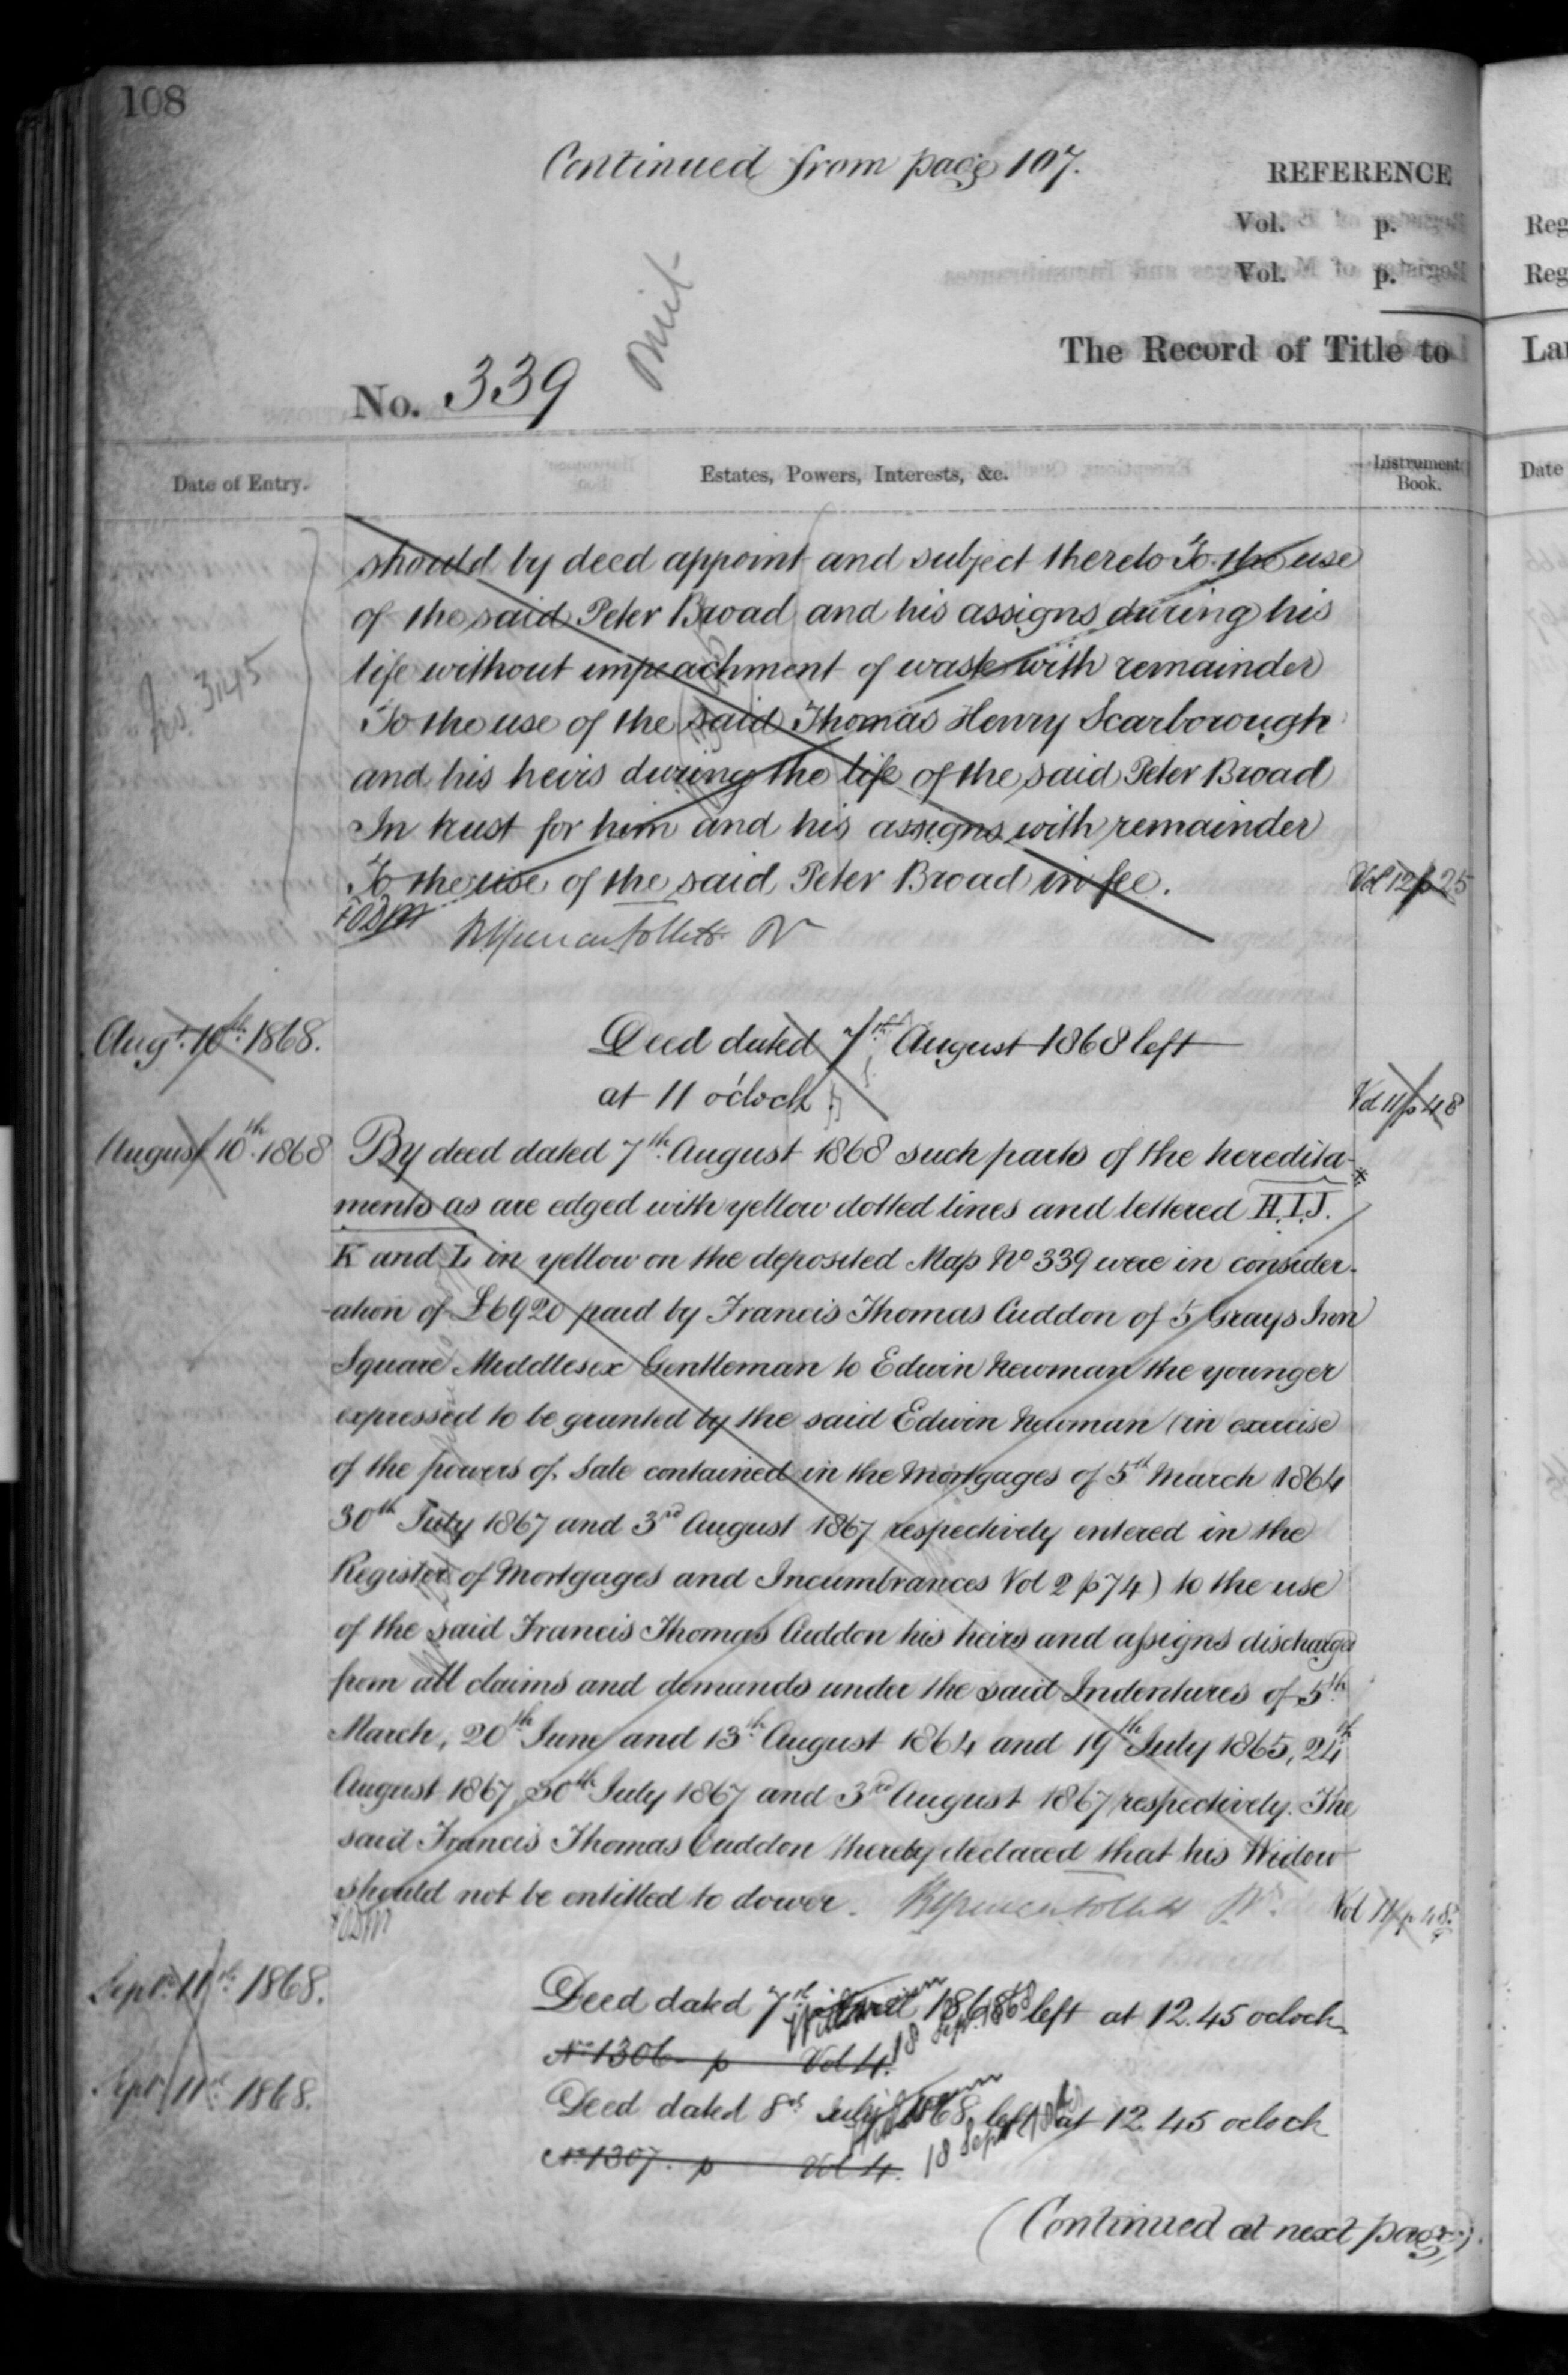 108
Continued from page 107.
REFERENCE
Vol. p.
Vol. p.
omit
The Record of Title to
No. 339
Date of Entry.
Estates, Powers, Interests, &c.
Instrument Book.
should by deed appoint and subject thereto To the use
of the said Peter Broad and his assigns during his
life without impeachment of waste with remainder
To the use of the said Thomas Henry Scarborough
and his heirs during the life of the said Peter Broad
In trust for him and his assigns with remainder
To the use of the said Peter Broad in fee.
Vol 12 p 25
Augt. 10th. 1868.
Deed dated 7th. August 1868 left
at 11 o'clock
Vol 11 p 48
August 10th. 1868
By deed dated 7th. August 1868 such parts of the heredita-
ments as are edged with yellow dotted lines and lettered H.I.J.
K and L in yellow on the deposited Map No 339 were in consider-
ation of £6920 paid by Francis Thomas Cuddon of 5 Grays Inn
Square Middlesex Gentleman to Edwin Newman the younger
expressed to be granted by the said Edwin Newman (in exercise
of the powers of Sale contained in the Mortgages of 5th March 1864
30th July 1867 and 3rd August 1867 respectively entered in the
Register of Mortgages and Incumbrances Vol 2 p 74) to the use
of the said Francis Thomas Cuddon his heirs and assigns discharged
from all claims and demands under the said Indentures of 5th
March, 20th June and 13th August 1864 and 19th July 1865, 24th
August 1867, 30th July 1867 and 3rd August 1867 respectively. The
said Francis Thomas Cuddon thereby declared that his Widow
should not be entitled to dower.
Vol 11 p 48.
Sept. 11th. 1868.
Deed dated 7th left at 12.45 oclock
18 Sept. 1868
No 1306 p Vol 4.
Sept 11th. 1868.
Deed dated 8th July 1868 left at 12.45 oclock
No 1307. p Vol 4.
18 Sept
(Continued at next page).
Reg
Reg
Lan
Date